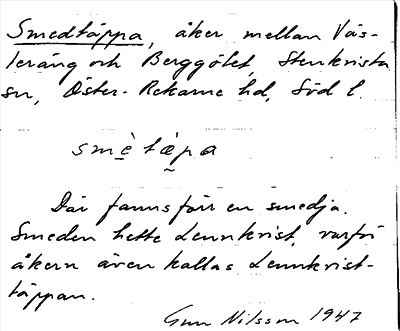 Smedtäppa, åker mellan Väs-
teräng och Berggölet, Stenkvista
sn, Öster-Rekarne hd, Söd l.
smè tä̀pa
Där fanns förr en smedja.
Smeden hette Lennkvist, varför
åkern även kallas Lennkvist-
täppan.
Gun Nilsson 1947